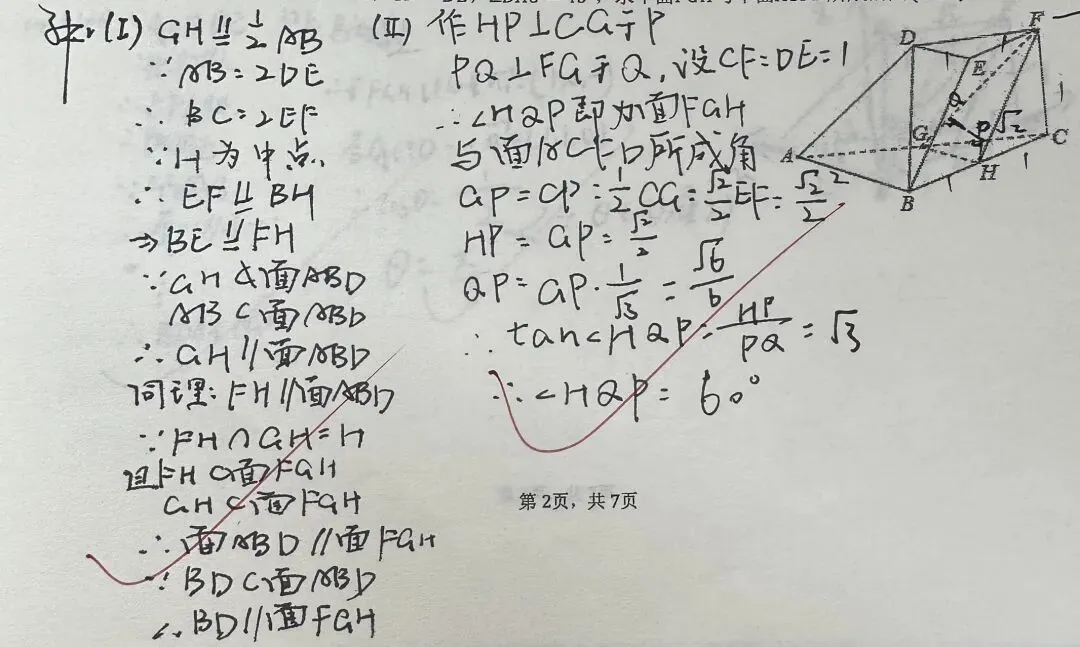 解:(I) GH ∥= 1/2 AB
∵ AB=2DE
∴ BC=2EF
∵ H为中点
∴ EF ∥= BH
⇒ BE ∥= FH
∵ GH ⊄ 面ABD
AB ⊂ 面ABD
∴ GH // 面ABD
同理: FH // 面ABD
∵ FH ∩ GH = H
且FH ⊂ 面FGH
GH ⊂ 面FGH
∴ 面ABD // 面FGH
∵ BD ⊂ 面ABD
∴ BD // 面FGH
(II) 作HP⊥CG于P
PQ⊥FG于Q, 设CF=DE=1
∴ ∠HQP即为面FGH
与面ACFD所成角
GP = CP = 1/2 CG = √2/2 EF = √2/2
HP = GP = √2/2
QP = GP · 1/√3 = √6/6
∴ tan∠HQP = HP/PQ = √3
∴ ∠HQP = 60°
D
E
F
A
B
C
G
H
P
Q
√2
1
2
第 2页，共 7页